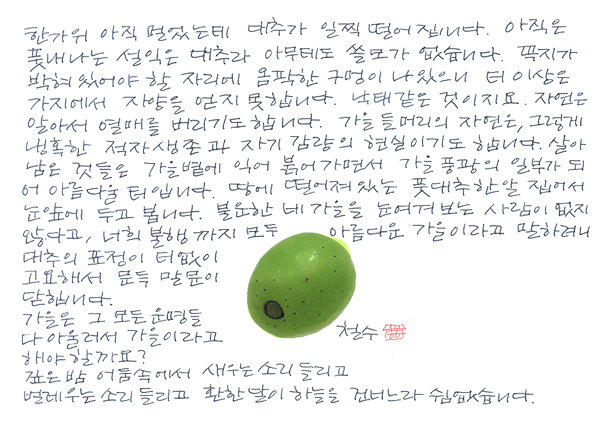 한가위 아직 멀었는데 대추가 일찍 떨어집니다. 아직은
풋내나는 설익은 대추라 아무데도 쓸모가 없습니다. 꼭지가
박혀있어야 할 자리에 옴팍한 구멍이 나 있으니 더 이상은
가지에서 자양을 얻지 못합니다. 낙태같은 것이지요. 자연은
알아서 열매를 버리기도 합니다. 가을 들머리의 자연은, 그렇게
냉혹한 적자생존과 자기 감량의 현실이기도 합니다. 살아
남은 것들은 가을볕에 익어 붉어가면서 가을 풍광의 일부가 되
어 아름다울 터입니다. 땅에 떨어져있는 풋대추 한알 집어서
눈앞에 두고 봅니다. 불운한 네 가을을 눈여겨 보는 사람이 없지
않다고, 너희 불행까지 모두 아름다운 가을이라고 말하려니
대추의 표정이 더없이
고요해서 문득 말문이
닫힙니다.
가을은 그 모든 운명들
다 아울러서 가을이라고
해야 할까요?
깊은 밤 어둠속에서 새우는 소리 들리고
벌레우는 소리 들리고 환한 달이 하늘을 건너느라 쉼없습니다.
철수